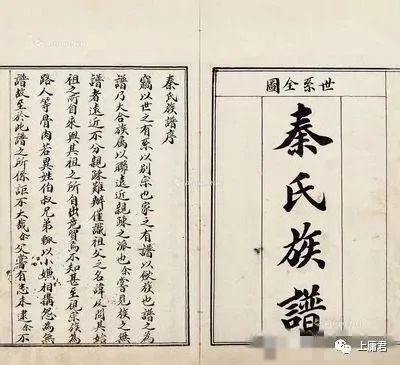 世系全圖
秦氏族譜
秦氏族譜序
竊以世之有系以別宗也家之有譜以收族也譜之為
譜乃大合族屬以聯遠近親疎之派也余嘗見族之無
譜者遠近不分親疎難辦僅識祖父之名諱及問其始
祖之所自來與其祖之所自出竟貿焉不知甚至視宗族為
路人等骨肉若異姓伯叔兄弟輒以小嫌相搆怨為無
譜故至於此譜之所係詎不大哉余父嘗有志未逮余不
上庸君